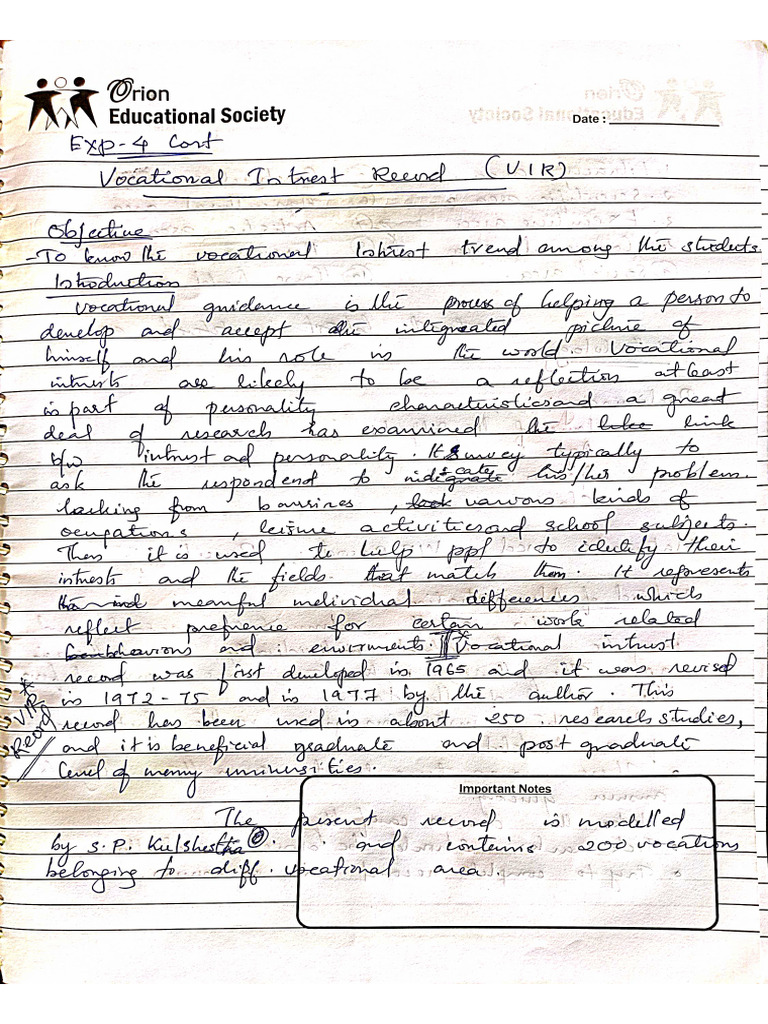 Orion
Educational Society
Date :
Exp-4 Cont
Vocational Intrest Record (V.I.R)
Objective
- To know the vocational Intrest trend among the students
Introduction
Vocational guidance is the process of helping a person to
develop and accept the integreated picture of
himself and his role in the world. Vocational
intrests are likely to be a reflection at least
in part of personality characteristics and a great
deal of research has examined the link
b/w intrest ad personality. It survey typically to
ask the respondend to indicate his/her problem
larking from , various kinds of
ocupations , leisure activities and school subjects.
Then it is used to help ppl to identify their
intrests and the fields that match them. It represents
meanful individual differences which
reflect prefrence for certain work related
behaviours and enviorments. The Vocational intrust
record was first developed in 1965 and it was revised
in 1972-75 and in 1977 by the author. This
* VIR Record
record has been used in about 250 research studies,
and it is beneficial graduate and post graduate
level of menny universities.
Important Notes
The present record is modelled
by S.P. Kulshestha and contains 200 vocations
belonging to diff. vocational area.